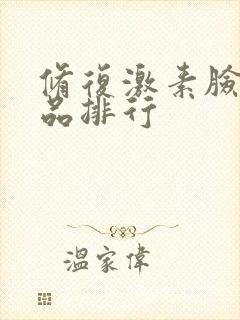 脩復激素臉
品排行
溫家偉